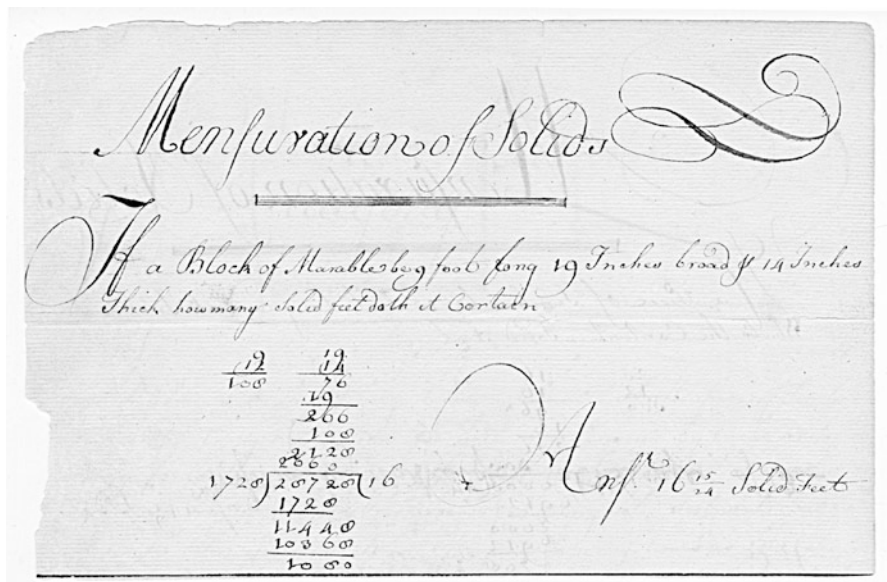 Mensuration of Solids
If a Block of Marable be 9 foot long 19 Inches broad & 14 Inches
Thick how many solid feet doth it Contain
9 19
12 14
108 76
19
266
108
2128
2660
1728)28728(16
1728
11448
10368
1080
Ansr. 16 15/24 Solid Feet